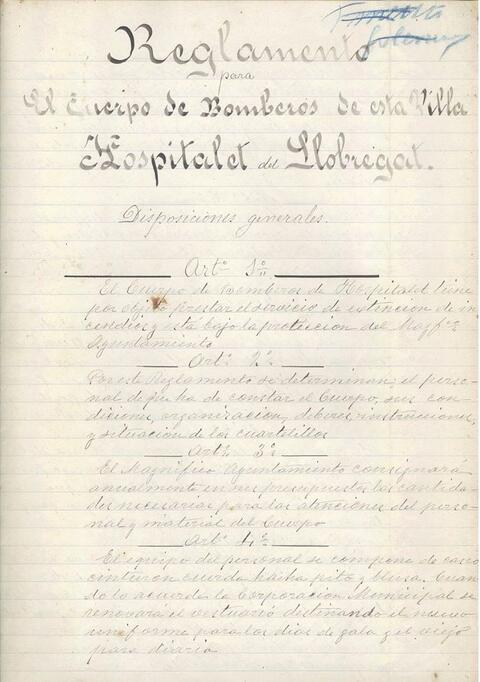 Reglamento
para
El Cuerpo de Bomberos de esta Villa
Hospitalet del Llobregat.
Disposiciones generales.
Arto 1o
El Cuerpo de Bomberos de Hospitalet tiene
por objeto prestar el servicio de extincion de in-
cendios y está bajo la proteccion del Magfco
Ayuntamiento
Arto 2o
Por este Reglamento se determinan, el perso-
nal de que ha de constar el Cuerpo, sus con-
diciones, organizacion, deberes, instrucciones,
y situacion de los cuartelillos
Arto 3o
El Magnifico Ayuntamiento consignará
anualmente en sus presupuestos las cantida-
des necesarias para las atenciones del perso-
nal y material del Cuerpo
Arto 4o
El equipo del personal se compone de casco
cinturon cuerda hacha pito y blusa. Cuan-
do lo acuerde la Corporacion Municipal se
renovará el vestuario destinando el nuevo
uniforme para los dias de gala y el viejo
para diario